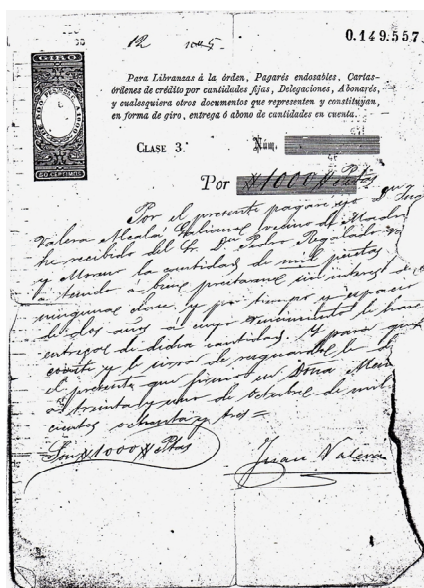 0.149.557
GIRO
50 CENTIMOS
Para Libranzas á la órden, Pagarés endosables, Cartas-
órdenes de crédito por cantidades fijas, Delegaciones, Abonarés,
y cualesquiera otros documentos que representen y constituyan,
en forma de giro, entrega ó abono de cantidades en cuenta.
CLASE 3.ª
Núm.
Por #1000# Pstas
Por el presente pagaré yo D. Juan
Valera Alcalá Galiano vecino de Madrid
he recibido del Sr. Dn. Pedro Regalado
y Moreno la cantidad de mil pesetas
tenido á bien prestarme sin interés de
ninguna clase, y por tiempo y espacio
de dos años á cuyo vencimiento le haré
entrega de dicha cantidad. Y para que
conste y le sirva de resguardo le
el presente que firmo en Doña Mencía
á treinta y uno de Octubre de mil
cientos ochenta y tres =
Son #1000# Pstas
Juan Valera